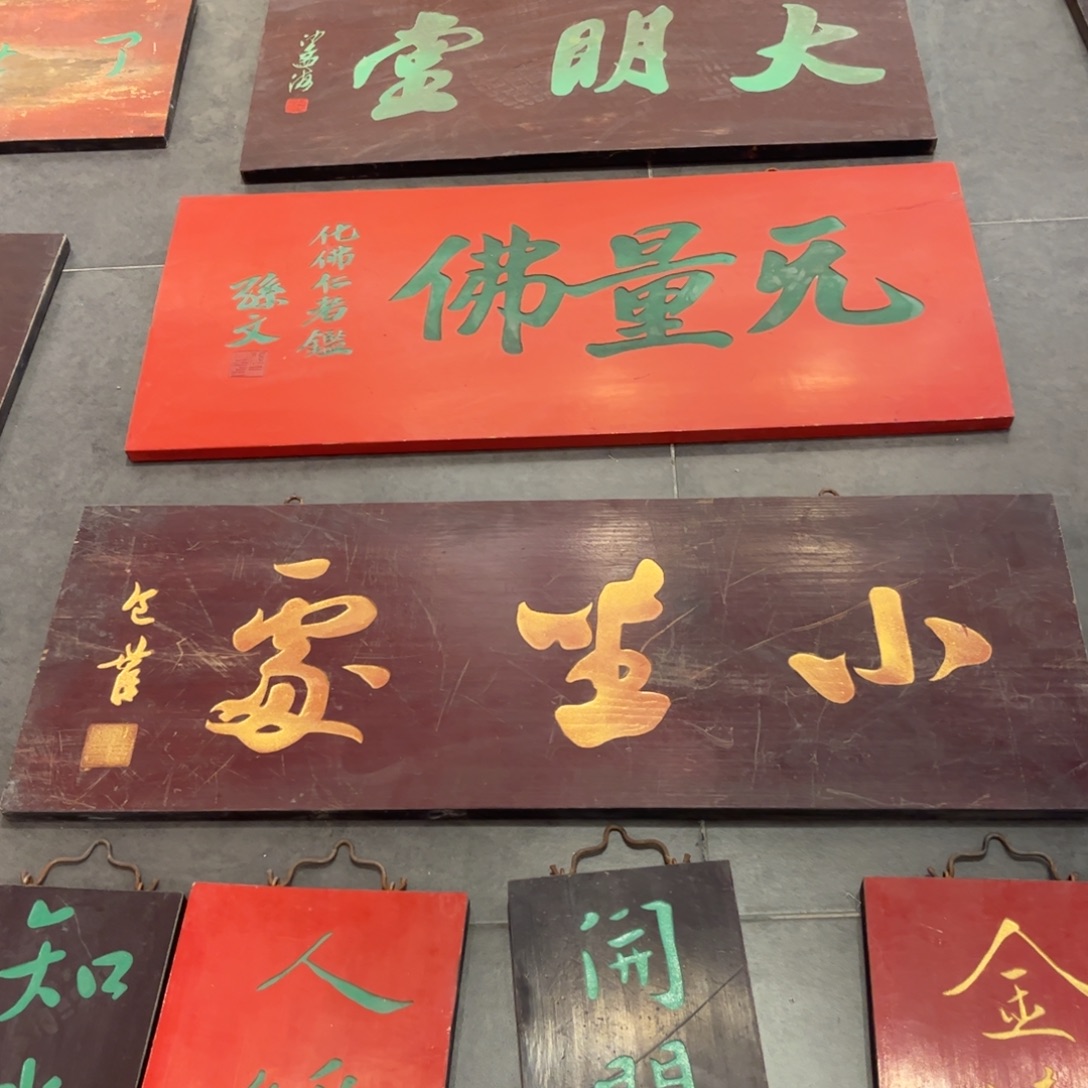 了
大明堂
沙孟海
无量佛
化佛仁者鑑
孫文
小坐處
包世臣
金
開
人
知